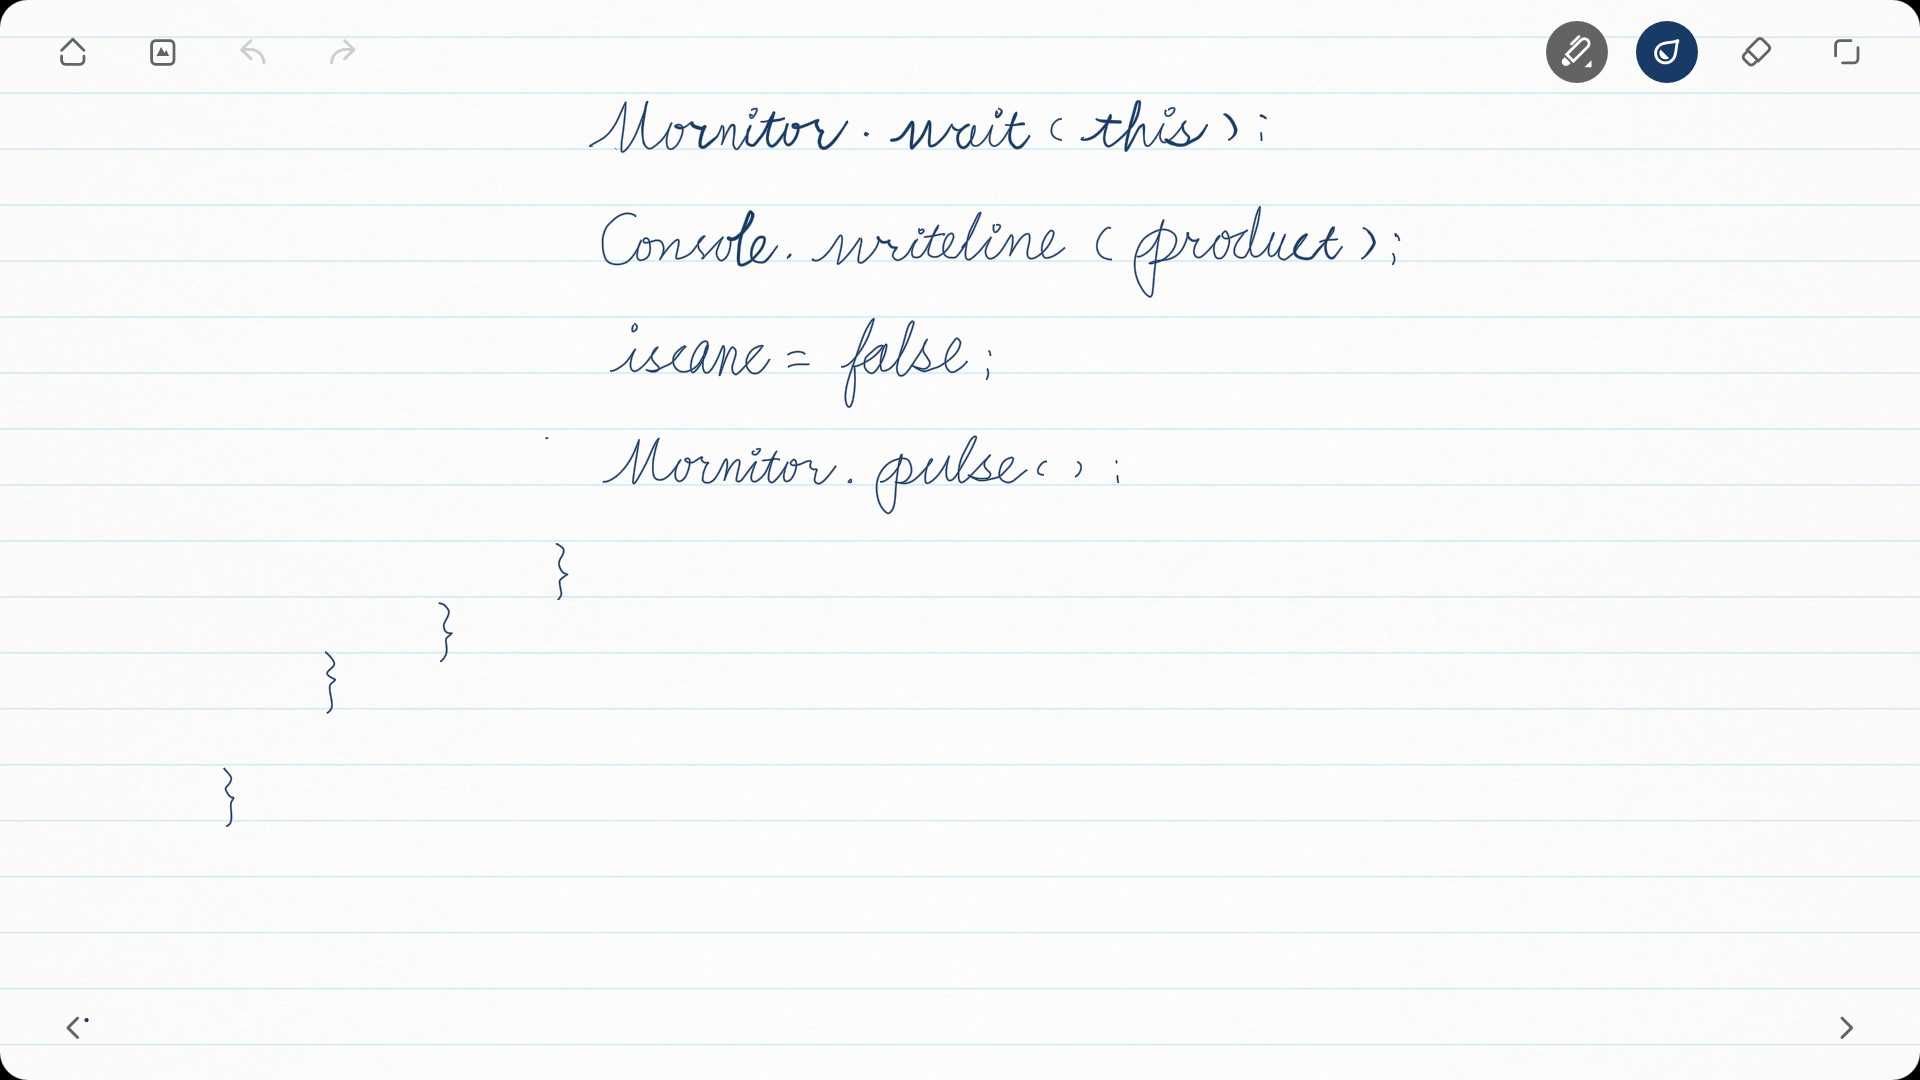 Mornitor.wait(this);
Console.writeline(product);
iscane = false;
Mornitor.pulse();
}
}
}
}